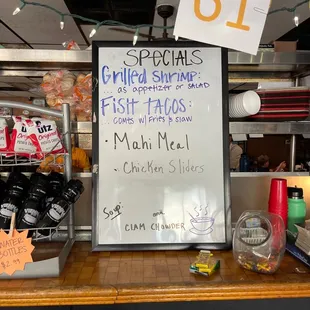 61
SPECIALS
Grilled Shrimp:
... as appetizer or SALAD
FISH TACOS:
COMES W/ FRIES & SLAW
• Mahi Meal
• Chicken Sliders
Soup:
CLAM CHOWDER
utz
WATER
BOTTLES
$2.99